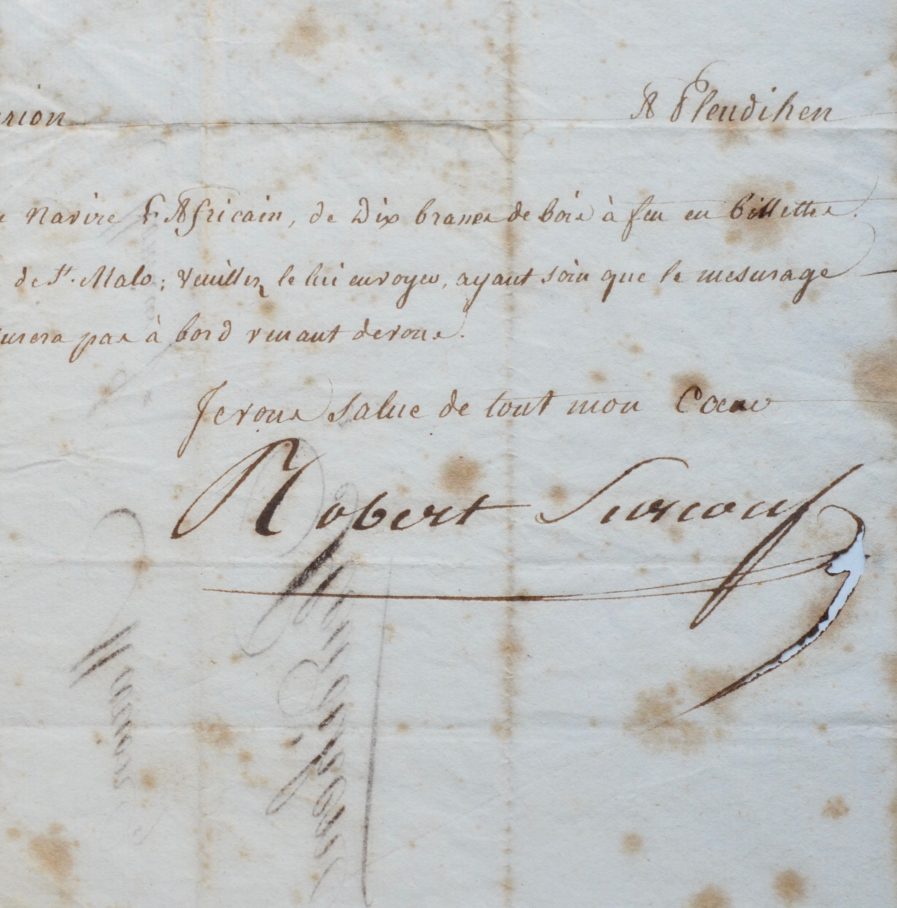 rion A Pleudihen
e Navire L'Africain, de Dix brasses de bois à feu en billettes.
de St. Malo; veuillez le lui envoyer, ayant soin que le mesurage
usera pas à bord venant de vous.
Je vous salue de tout mon Coeur
Robert Surcouf